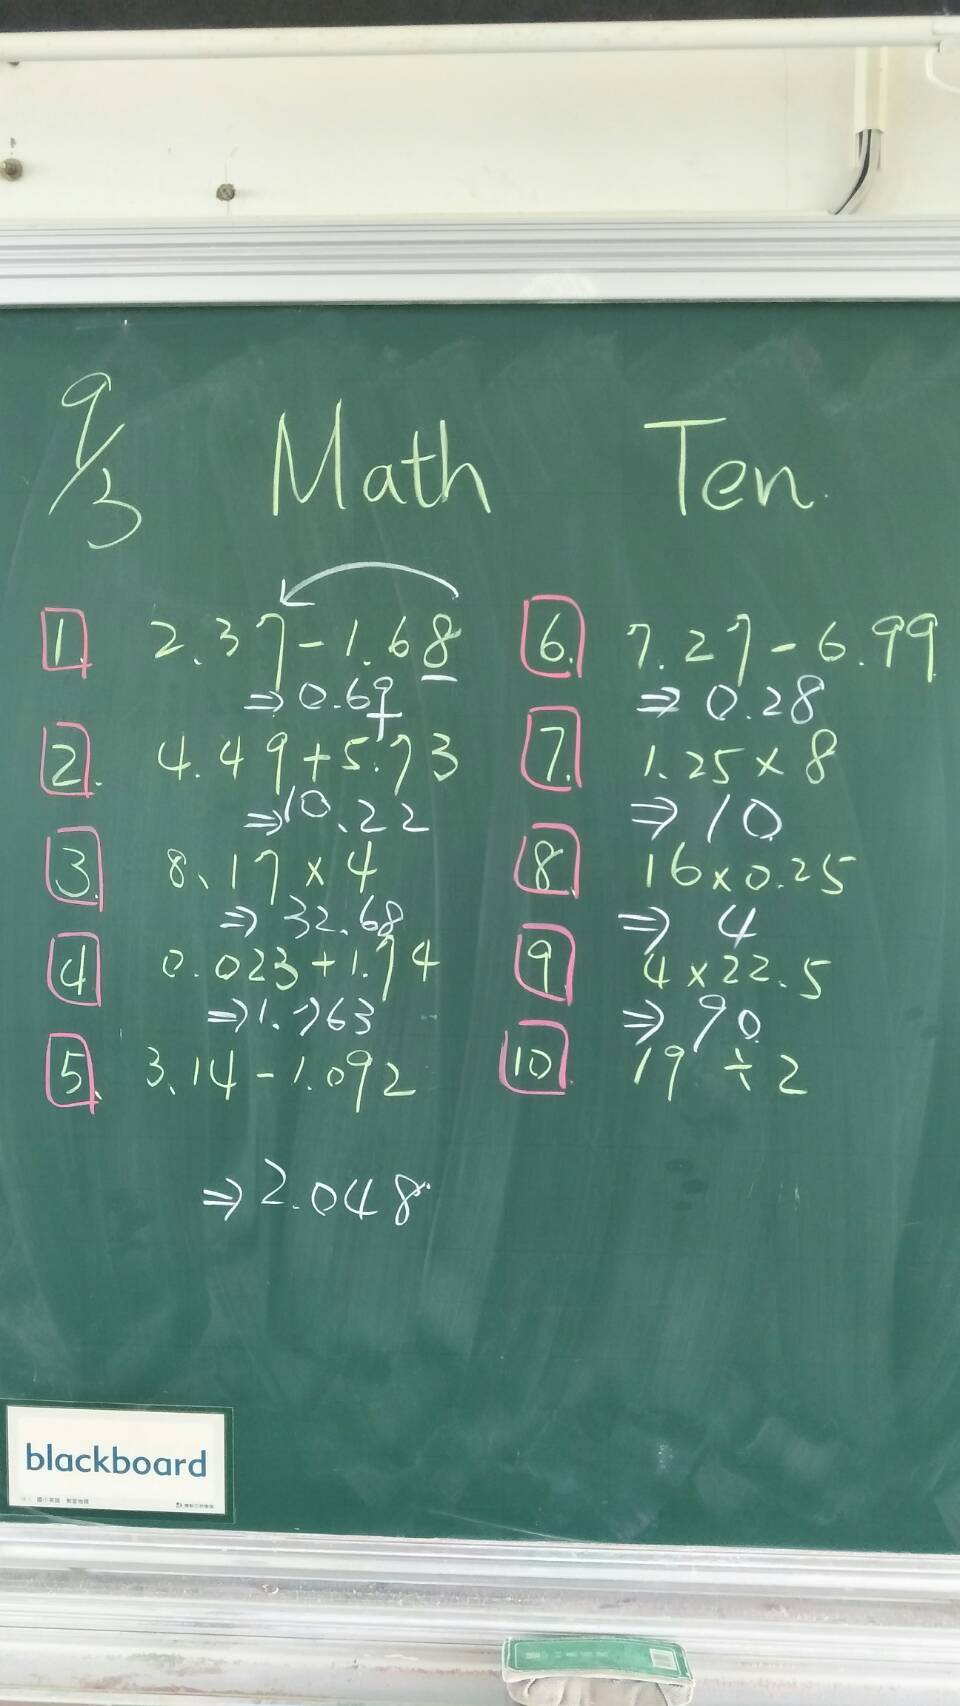 9/3 Math Ten
1. 2.37-1.68
⇒0.69
2. 4.49+5.73
⇒10.22
3. 8.17×4
⇒32.68
4. 0.023+1.74
⇒1.763
5. 3.14-1.092
⇒2.048
6. 7.27-6.99
⇒0.28
7. 1.25×8
⇒10
8. 16×0.25
⇒4
9. 4×22.5
⇒90
10. 19÷2
blackboard